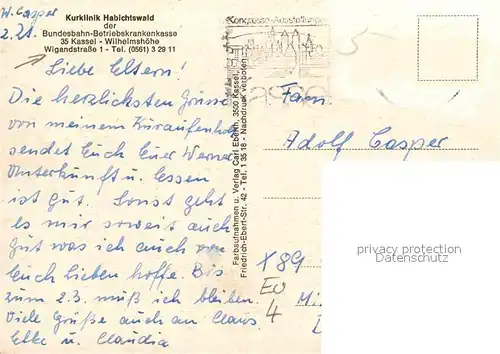 W. Casper
Kurklinik Habichtswald
der
Bundesbahn-Betriebskrankenkasse
35 Kassel - Wilhelmshöhe
Wigandstraße 1 - Tel. (0561) 3 29 11
Liebe Eltern!
Die herzlichsten Grüsse
von meinem Kuraufenhal
sendet Euch Euer Werner
Unterkunft u. Essen
ist gut. Sonst geht
es mir soweit auch
gut was ich auch von
Euch Lieben hoffe. Bis
zum 2.3. muß ich bleiben.
Viele Grüße auch an Claus
Elke u. Claudia
Farbaufnahmen u. Verlag Carl Eberth, 3500 Kassel,
Friedrich-Ebert-Str. 42 - Tel. 1 35 18 - Nachdruck verboten
Kongresse-Ausstellung
5-
Fam.
Adolf Casper
privacy protection
Datenschutz
X 89
EU
4
Mi